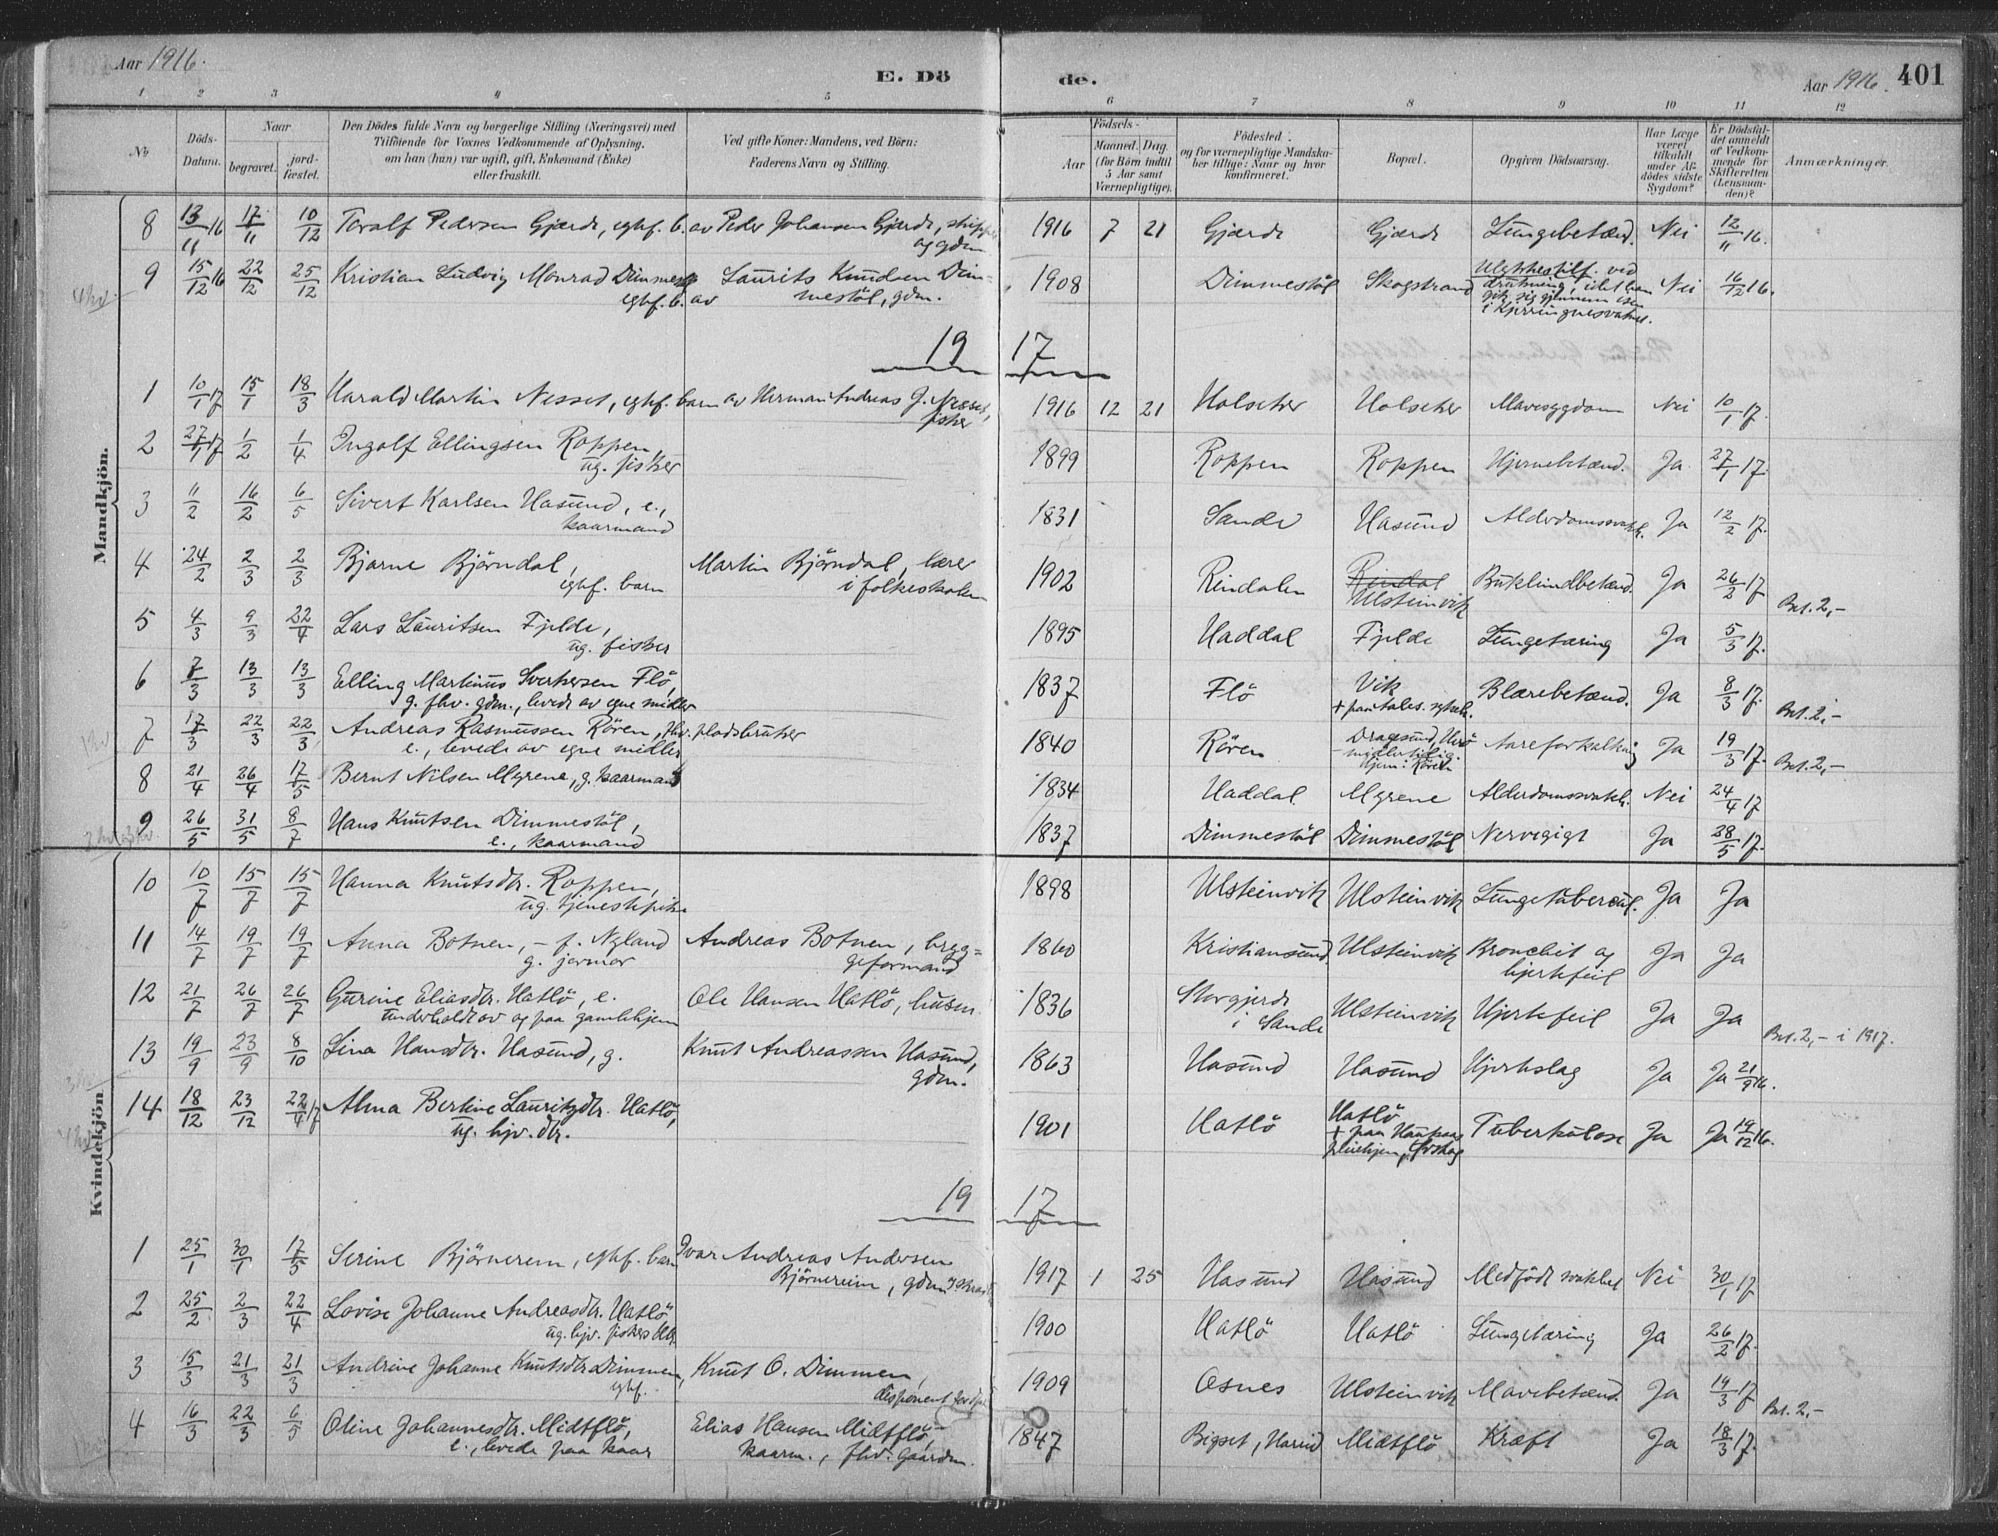 Aar 1916. E. Dö de. Aar 1916. 401
1 2 3 4 5 6 7 8 9 10 11 12
No Döds-Datum. Naar begravet. jordfæstet. Den Dödes fulde Navn og borgerlige Stilling (Næringsvei) med Tilföiende for Voxnes Vedkommende af Oplysning, om han (hun) var ugift, gift, Enkemand (Enke) eller fraskilt. Ved gifte Koner: Mandens, ved Börn: Faderens Navn og Stilling. Födsels- Aar Maaned. Dag. (for Börn indtil 5 Aar samt Værnepligtige). Födested og for værnepligtige Mandskaber tillige: Naar og hvor konfirmeret. Bopæl. Opgiven Dödsaarsag. Har Læge været tilkaldt under Afdödes sidste Sygdom? Er Dödsfaldet anmeldt af Vedkommende for Skifteretten (Lensmanden)? Anmærkninger.
Mandkjön.
8 13/11 16 17/11 10/12 Toralf Pedersen Gjærde, eghf. b. av Peder Johansen Gjærde, skipper 1916 7 21 Gjærde Gjærde Lungebetænd. Nei 12/11 16.
og gdm.
9 15/12 16 22/12 25/12 Kristian Ludvig Monrad Dimmestöl Laurits Knudsen Dim- 1908 Dimmestöl Skogstrand Ulykkestilf. ved Nei 16/12 16.
eghf. b. av mestöl, gdm. drukning, idet han
gik sig gjennem isen
i Kjerringnesvatnet.
19 17
1 10/1 17 15/1 18/3 Harald Martin Nesset, eghf. barn av Herman Andreas J. Nesset, 1916 12 21 Holseker Holseker Mavesygdom Nei 10/1 17.
fisker
2 27/1 17 1/2 1/4 Ingolf Ellingsen Roppen, 1899 Roppen Roppen Hjernebetænd. Ja 27/1 17.
ug. fisker
3 11/2 16/2 6/5 Sivert Karlsen Hasund, e., 1831 Sande Hasund Alderdomssvakh. Ja 12/2 17.
kaarmand
4 24/2 2/3 2/3 Bjarne Björndal, Martin Björndal, lærer 1902 Rindalen Rindal Buklindbetænd. Ja 26/2 17
eghf. barn i folkeskolen Ulsteinvik Bet. 2,-
5 4/3 9/3 22/4 Lars Lauritsen Fjelde, 1895 Haddal Fjelde Lungetæring Ja 5/3 17.
ug. fisker
6 7/3 13/3 13/3 Elling Martinus Sverkersen Flö, 1837 Flö Vik Blærebetænd. Ja 8/3 17.
g. fhv. gdm., levede av egne midler + paa Aales. sykeh. Bet. 2,-
7 17/3 22/3 22/3 Andreas Rasmussen Rören, fhv. pladsbruker 1840 Rören Dragesund, Herö Aareforkalkning Ja 19/3 17.
e., levede av egne midler midlertidig Bet. 2,-
hjem: Rören
8 21/4 26/4 17/5 Bernt Nilsen Myrene, g. kaarmand 1834 Haddal Myrene Alderdomssvakh. Nei 24/4 17
9 26/5 31/5 8/7 Hans Knutsen Dimmestöl, 1837 Dimmestöl Dimmestöl Nervegigt Ja 28/5 17.
e., kaarmand
Kvindekjön
10 10/7 15/7 15/7 Hanna Knutsdtr. Roppen, 1898 Ulsteinvik Ulsteinvik Lungetubercul. Ja Ja
ug. tjenestepike
11 14/7 19/7 19/7 Anna Botnen, - f. Nyland Andreas Botnen, bryg- 1860 Kristiansund Ulsteinvik Bronchit og Ja Ja
g. jormor geformand hjertefeil
12 21/7 26/7 26/7 Gurine Eliasdtr. Hatlö, e. Ole Hansen Hatlö, husm. 1836 Storgjerde Ulsteinvik Hjertefeil Ja Ja
underholdt av og paa gamlehjem i Sande Bet. 2,- i 1917.
13 19/9 23/9 8/10 Lina Hansdtr. Hasund, g. Knut Andreassen Hasund, 1863 Hasund Hasund Hjerteslag Ja Ja 21/9 16.
gdm.
14 18/12 23/12 22/4 17 Alma Bertine Lauritzdtr. Hatlö, 1901 Hatlö Hatlö Tuberkulose Ja Ja 19/12 16.
ug. hjv. dtr. + paa
19 17
1 25/1 30/1 17/5 Serine Björnerem, eghf. barn Ivar Andreas Andersen 1917 1 25 Hasund Hasund Medfödt svakhet Nei 30/1 17
Björnereim, gdm
2 25/2 2/3 22/4 Lovise Johanne Andreasdtr. Hatlö 1900 Hatlö Hatlö Lungetæring Ja 26/2 17.
ug. hjv. fiskers dtr.
3 15/3 21/3 21/3 Andrine Johanne Knutsdtr Dimmen, Knut O. Dimmen, 1909 Osnes Ulsteinvik Mavebetænd. Ja 19/3 17
eghf. disponent Bet. 2,-
4 16/3 22/3 6/5 Oline Johannesdtr. Midtflö, Elias Hansen Midtflö, 1847 Bigset, Hareid Midtflö Kræft Ja 18/3 17.
e., levede paa kaar kaarm., fhv. gaardm.